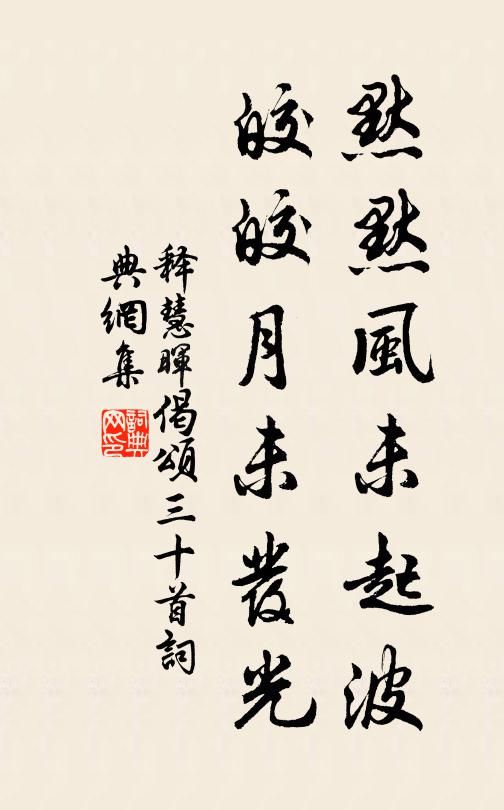 默默風未起波
皎皎月未發光
释慧暉偈頌三十首詞
典網集
詞典网印